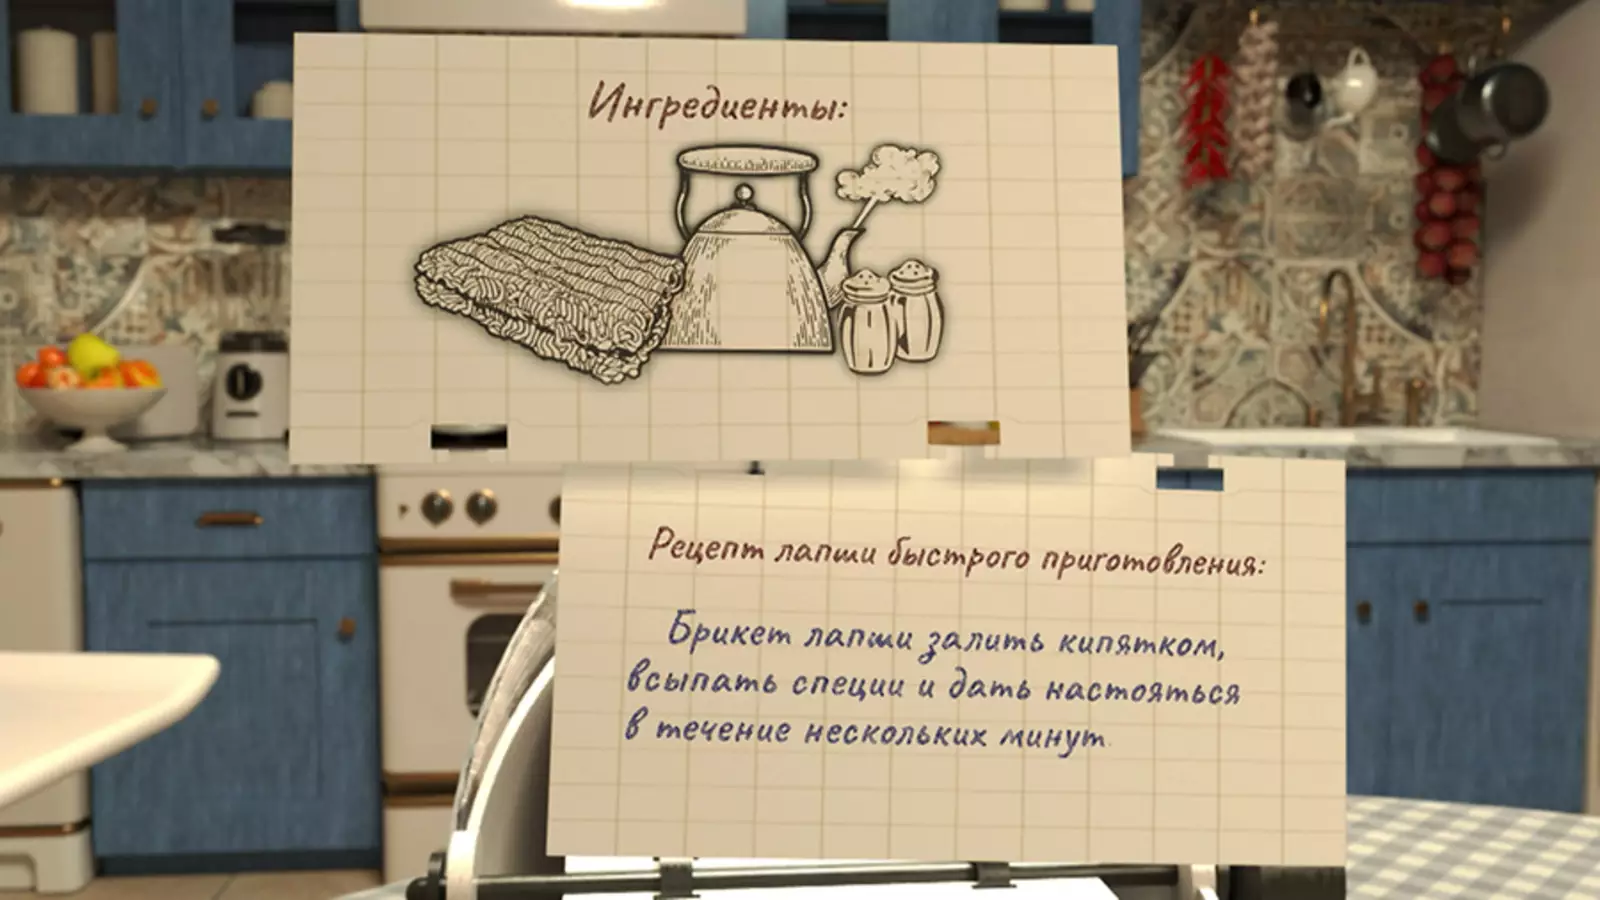 Ингредиенты:
Рецепт лапши быстрого приготовления:
Брикет лапши залить кипятком,
всыпать специи и дать настояться
в течение нескольких минут.